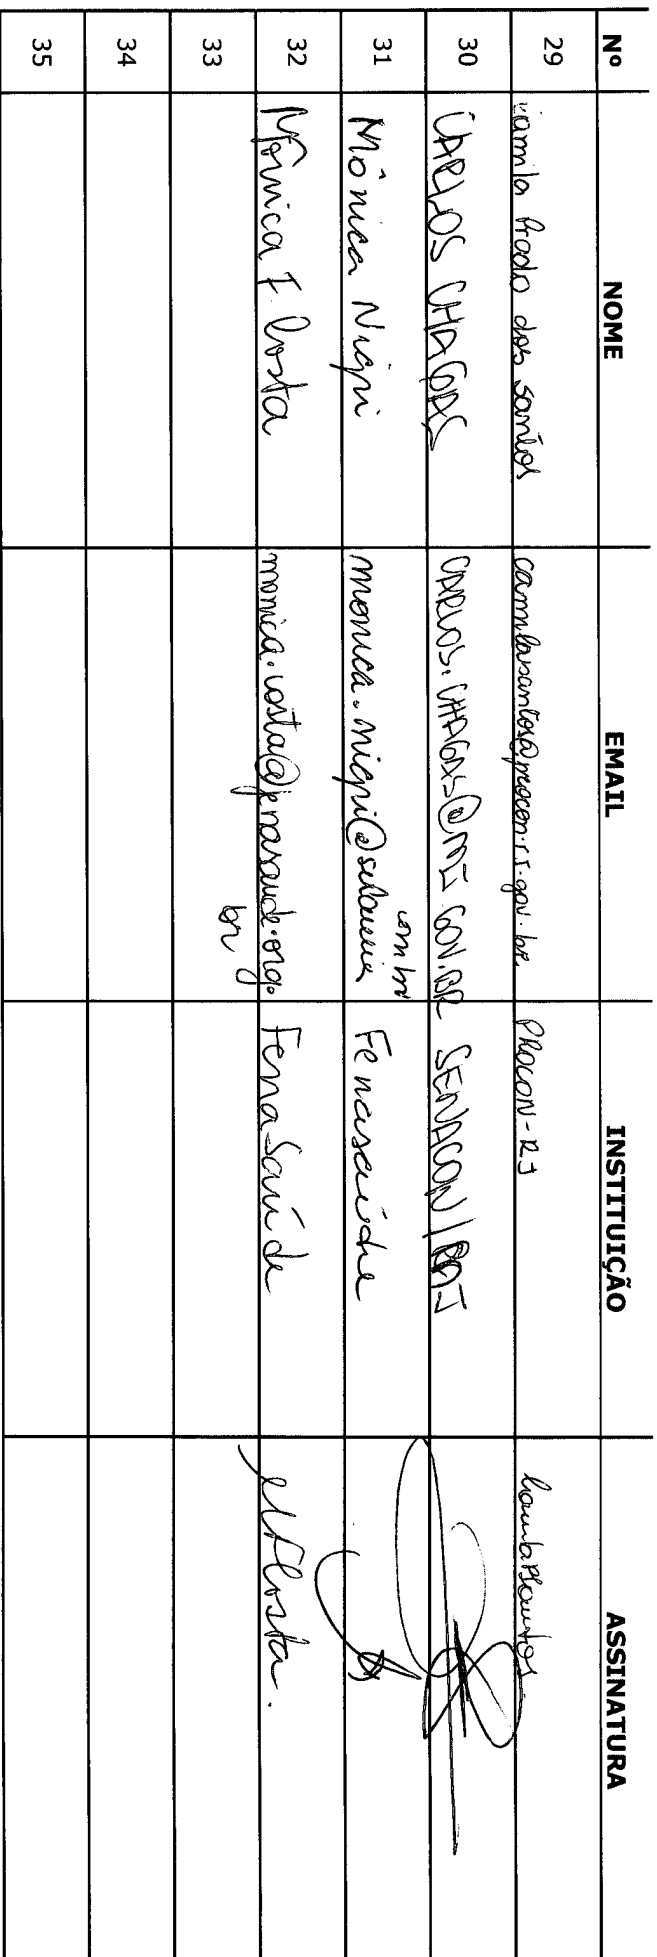 Nº NOME EMAIL INSTITUIÇÃO ASSINATURA
29 Camila Prado dos Santos camilasantos@procon.rj.gov.br. PROCON-RJ
30 CARLOS CHAGAS CARLOS.CHAGAS@MJ.GOV.BR SENACON/
31 Mônica Nigri monica.nigri@sulamerica com br Fenasaúde
32 Mônica F. Costa monica.costa@fenasaude.org. br FenaSaúde MFCosta.
33
34
35